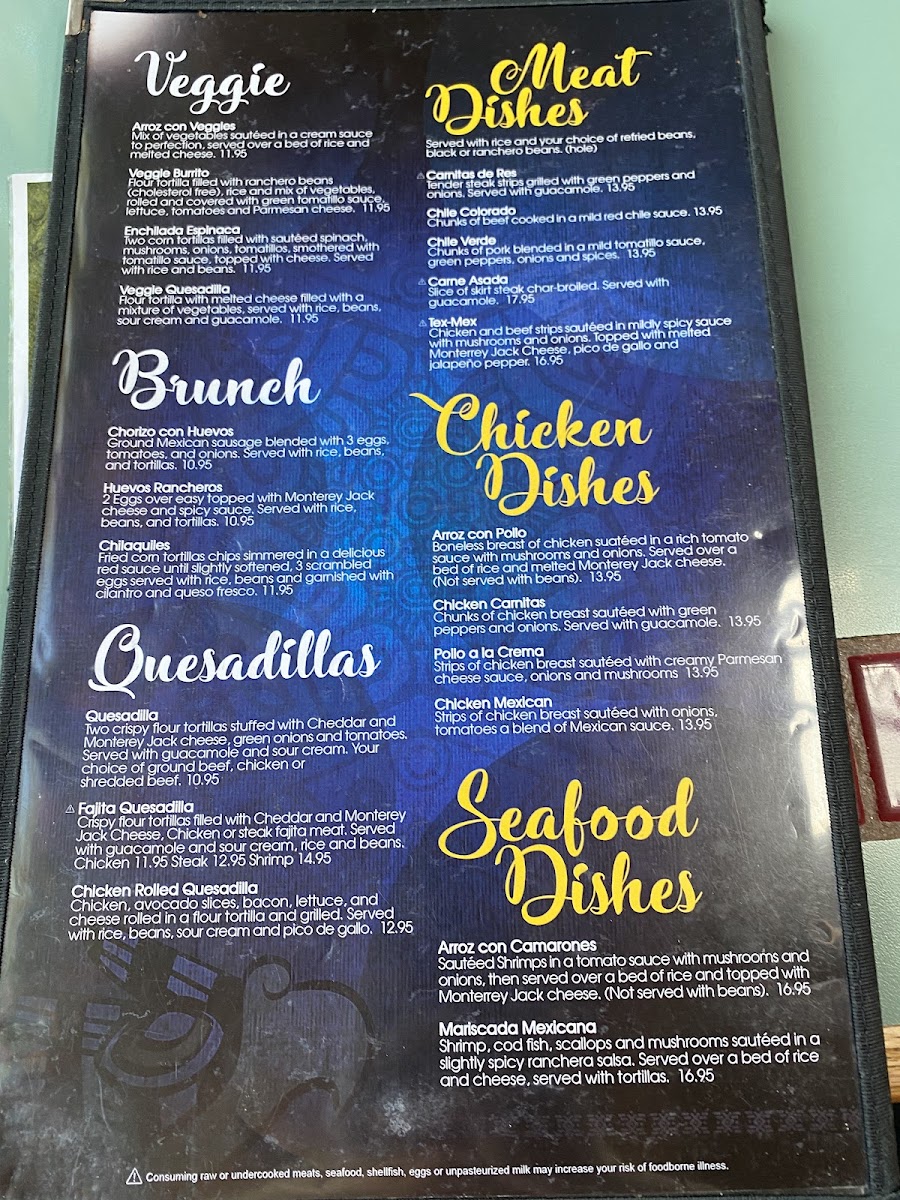 Veggie
Arroz con Veggies
Mix of vegetables sautéed in a cream sauce
to perfection, served over a bed of rice and
melted cheese. 11.95
Veggie Burrito
Flour tortilla filled with ranchero beans
(cholesterol free), rice and mix of vegetables,
rolled and covered with green tomatillo sauce,
lettuce, tomatoes and Parmesan cheese. 11.95
Enchilada Espinaca
Two corn tortillas filled with sautéed spinach,
mushrooms, onions, tomatillos, smothered with
tomatillo sauce, topped with cheese. Served
with rice and beans. 11.95
Veggie Quesadilla
Flour tortilla with melted cheese filled with a
mixture of vegetables, served with rice, beans,
sour cream and guacamole. 11.95
Brunch
Chorizo con Huevos
Ground Mexican sausage blended with 3 eggs,
tomatoes, and onions. Served with rice, beans,
and tortillas. 10.95
Huevos Rancheros
2 Eggs over easy topped with Monterey Jack
cheese and spicy sauce. Served with rice,
beans, and tortillas. 10.95
Chilaquiles
Fried corn tortillas chips simmered in a delicious
red sauce until slightly softened, 3 scrambled
eggs served with rice, beans and garnished with
cilantro and queso fresco. 11.95
Quesadillas
Quesadilla
Two crispy flour tortillas stuffed with Cheddar and
Monterey Jack cheese, green onions and tomatoes.
Served with guacamole and sour cream. Your
choice of ground beef, chicken or
shredded beef. 10.95
⚠ Fajita Quesadilla
Crispy flour tortillas filled with Cheddar and Monterey
Jack Cheese, Chicken or steak fajita meat. Served
with guacamole and sour cream, rice and beans.
Chicken 11.95 Steak 12.95 Shrimp 14.95
Chicken Rolled Quesadilla
Chicken, avocado slices, bacon, lettuce, and
cheese rolled in a flour tortilla and grilled. Served
with rice, beans, sour cream and pico de gallo. 12.95
Meat
Dishes
Served with rice and your choice of refried beans,
black or ranchero beans. (hole)
⚠ Carnitas de Res
Tender steak strips grilled with green peppers and
onions. Served with guacamole. 13.95
Chile Colorado
Chunks of beef cooked in a mild red chile sauce. 13.95
Chile Verde
Chunks of pork blended in a mild tomatillo sauce,
green peppers, onions and spices. 13.95
⚠ Carne Asada
Slice of skirt steak char-broiled. Served with
guacamole. 17.95
⚠ Tex-Mex
Chicken and beef strips sautéed in mildly spicy sauce
with mushrooms and onions. Topped with melted
Monterrey Jack Cheese, pico de gallo and
jalapeño pepper. 16.95
Chicken
Dishes
Arroz con Pollo
Boneless breast of chicken suatéed in a rich tomato
sauce with mushrooms and onions. Served over a
bed of rice and melted Monterey Jack cheese.
(Not served with beans). 13.95
Chicken Carnitas
Chunks of chicken breast sautéed with green
peppers and onions. Served with guacamole. 13.95
Pollo a la Crema
Strips of chicken breast sautéed with creamy Parmesan
cheese sauce, onions and mushrooms 13.95
Chicken Mexican
Strips of chicken breast sautéed with onions,
tomatoes a blend of Mexican sauce. 13.95
Seafood
Dishes
Arroz con Camarones
Sautéed Shrimps in a tomato sauce with mushrooms and
onions, then served over a bed of rice and topped with
Monterrey Jack cheese. (Not served with beans). 16.95
Mariscada Mexicana
Shrimp, cod fish, scallops and mushrooms sautéed in a
slightly spicy ranchera salsa. Served over a bed of rice
and cheese, served with tortillas. 16.95
⚠ Consuming raw or undercooked meats, seafood, shellfish, eggs or unpasteurized milk may increase your risk of foodborne illness.